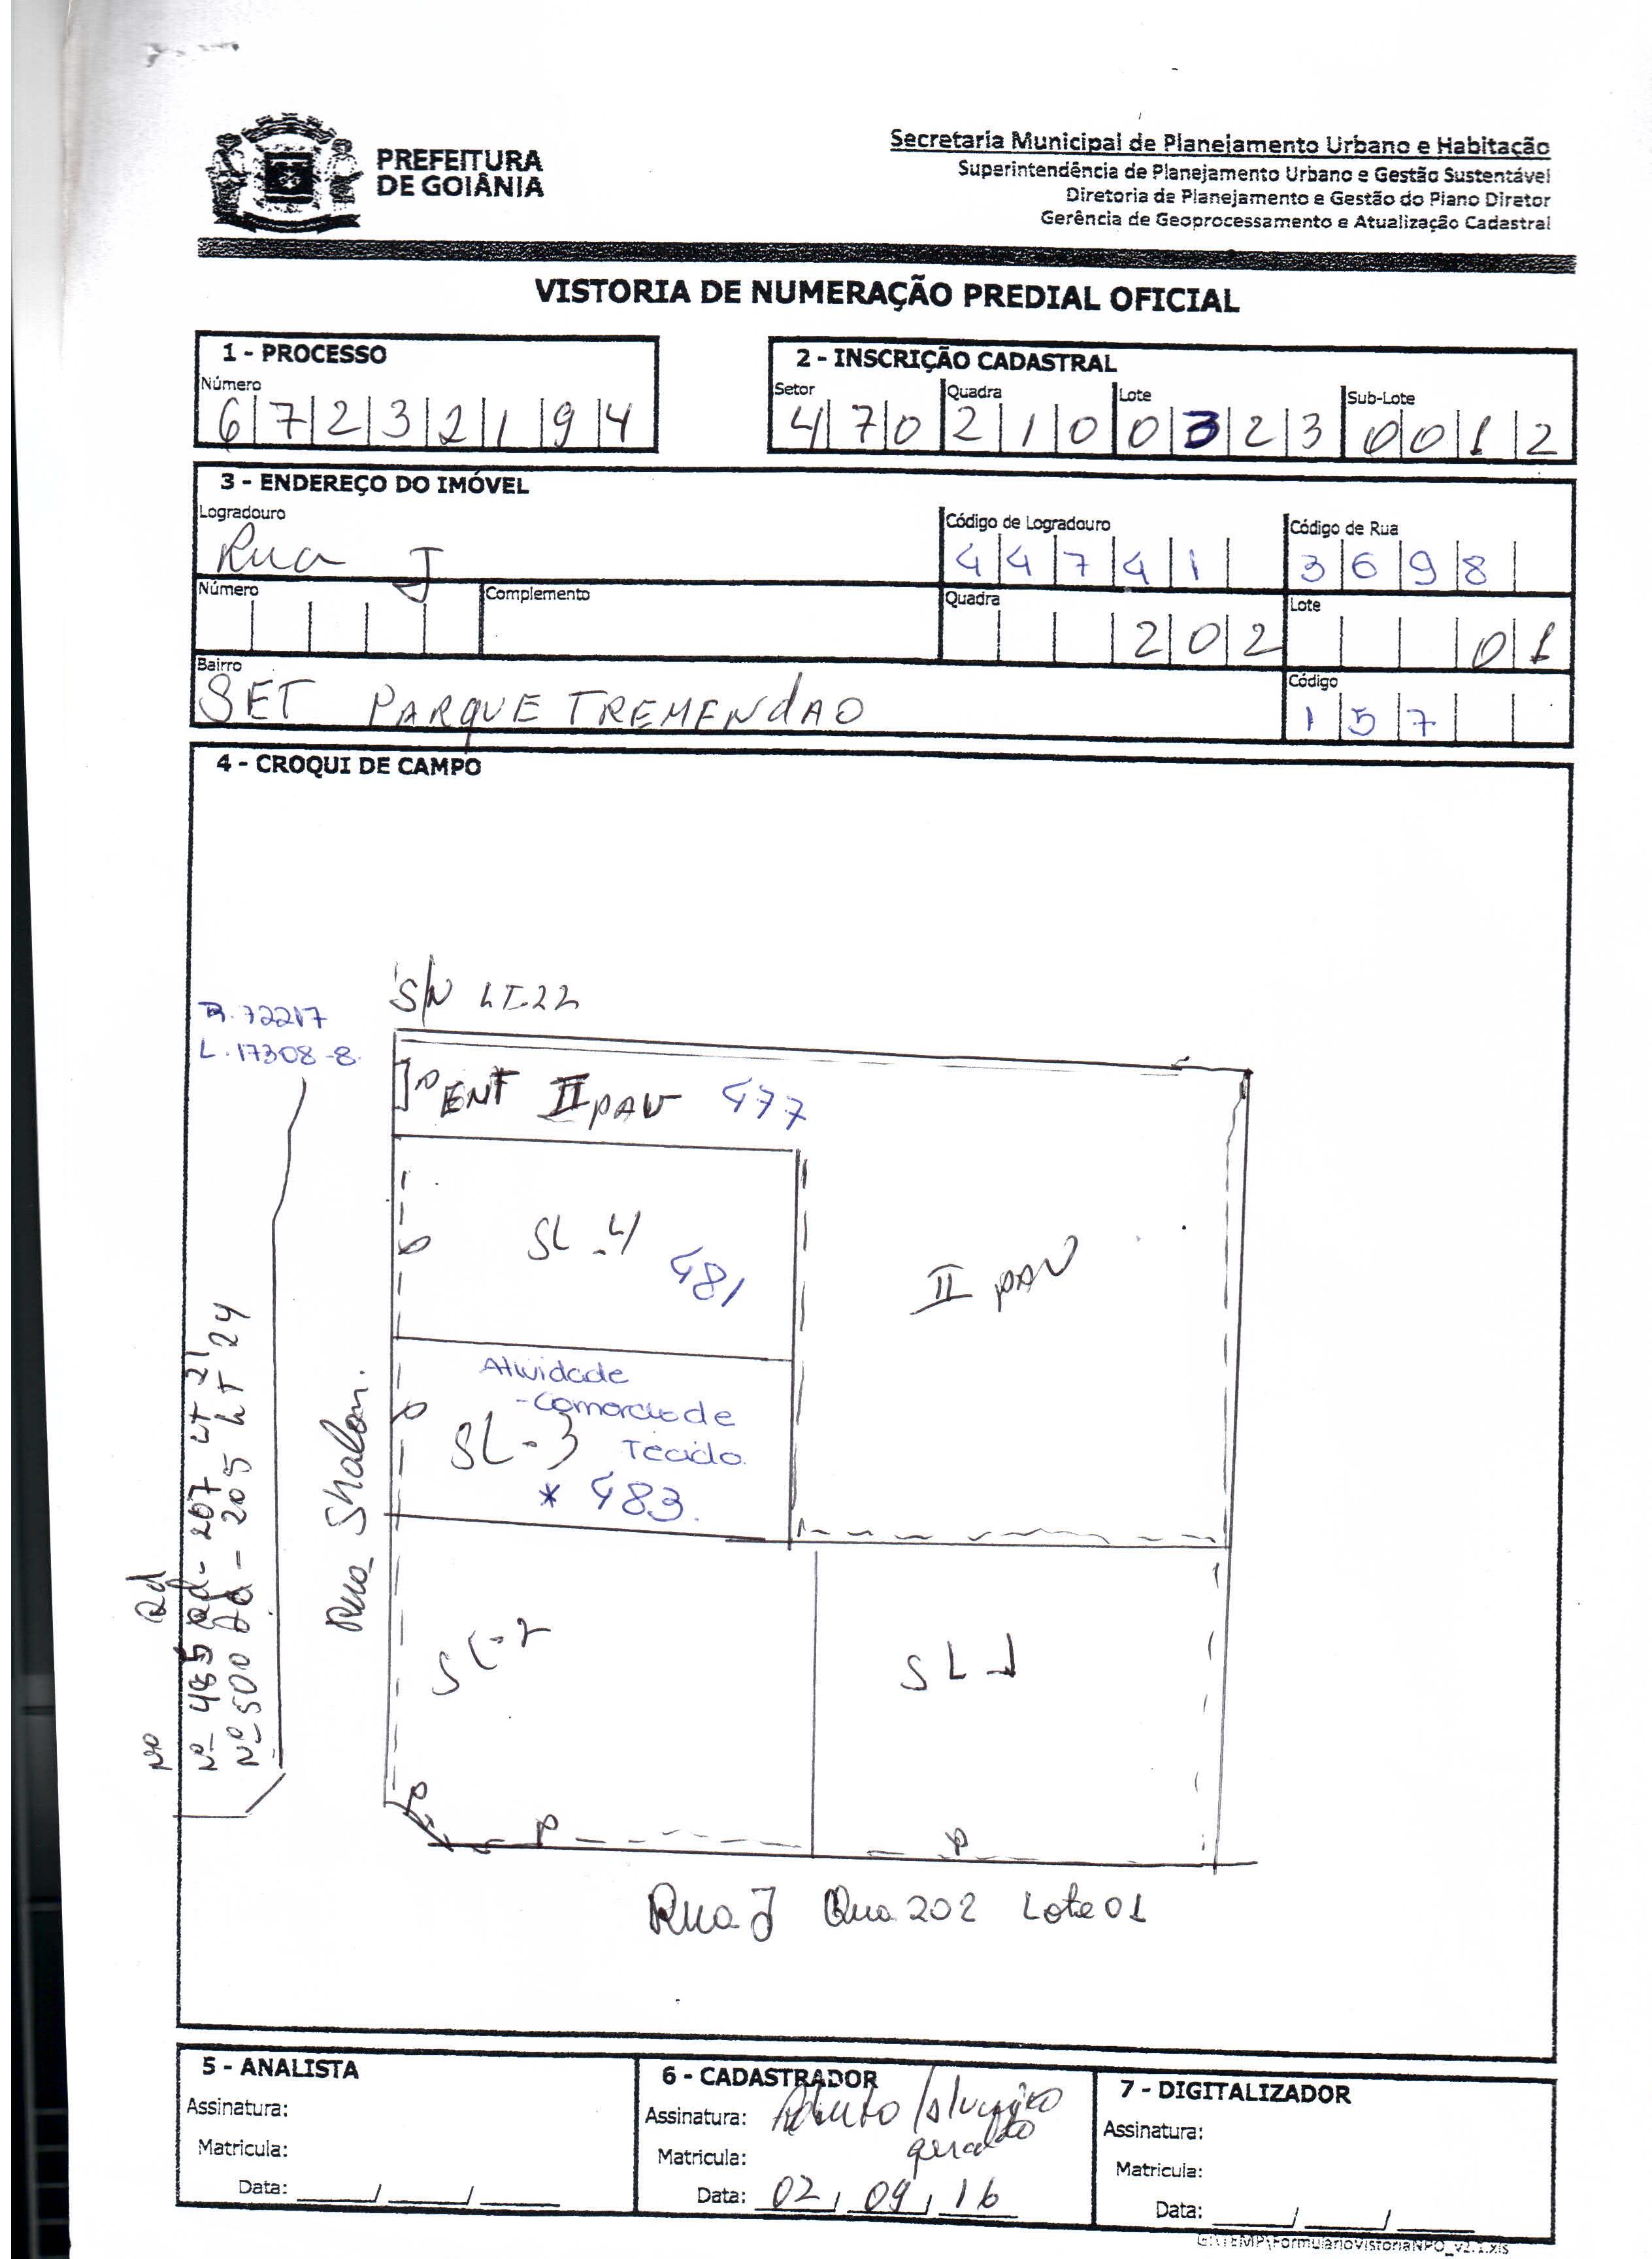 PREFEITURA
DE GOIÂNIA
Secretaria Municipal de Planejamento Urbano e Habitação
Superintendência de Planejamento Urbano e Gestão Sustentável
Diretoria de Planejamento e Gestão do Plano Diretor
Gerência de Geoprocessamento e Atualização Cadastral
VISTORIA DE NUMERAÇÃO PREDIAL OFICIAL
1 - PROCESSO
Número
6 7 2 3 2 1 9 4
2 - INSCRIÇÃO CADASTRAL
Setor Quadra Lote Sub-Lote
4 7 0 2 1 0 0 3 2 3 0 0 1 2
3 - ENDEREÇO DO IMÓVEL
Logradouro Código de Logradouro Código de Rua
Rua J 4 4 7 4 1 3 6 9 8
Número Complemento Quadra Lote
2 0 2 0 1
Bairro Código
SET PARQUE TREMENDAO 1 5 7
4 - CROQUI DE CAMPO
S/N LT-22
R. 72217
L. 17308-8.
P ENT II PAV 477
SL-4
481
II PAV
Atividade
- Comercio de
SL-3 Tecido.
* 483.
Rua Shalon.
Nº Qd
Nº 485 Qd- 207 LT 21
Nº 500 Qd - 205 LT 24
SL-2
SL-1
P
P P
Rua J Qua 202 Lote 01
5 - ANALISTA
Assinatura:
Matricula:
Data: / /
6 - CADASTRADOR
Assinatura:
geraldo
Matricula:
Data: 02 / 09 / 16
7 - DIGITALIZADOR
Assinatura:
Matricula:
Data: / /
G:\TEMP\FormularioVistoriaNPO_v2.1.xls